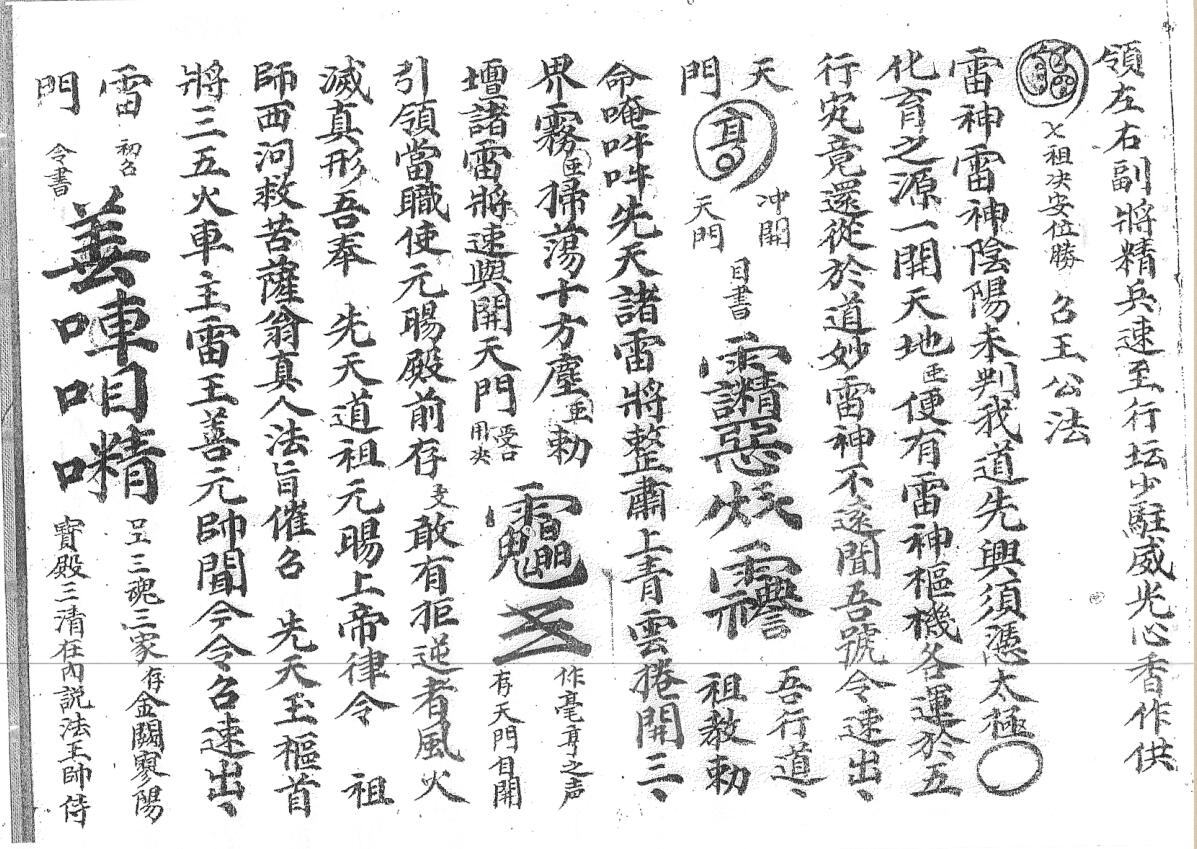 領左右副將精兵速至行坛少駐威光心香作供
祖决安位勝 召王公法
雷神雷神陰陽未判我道先興須憑太極
化育之源一開天地便有雷神樞機各運於五
行究竟還從於道妙雷神不遠聞吾號令速出、
天門 冲開天門 目書 吾行道、祖教勅
命唵吽吽先天諸雷將整肅上青雲捲開三、
界霧掃蕩十方塵勅
壇諸雷將速與開天門 用决 作毫亨之声 存天門目開
引領當職使元暘殿前存 敢有拒逆者風火
滅真形吾奉 先天道祖元暘上帝律令 祖
師西河救苦薩翁真人法旨催召 先天玉樞首
將三五火車主雷王善元帥聞今令召速出、
雷門 初召令書 呈三魂三家存金闕寥陽寶殿三清在內説法王帥侍